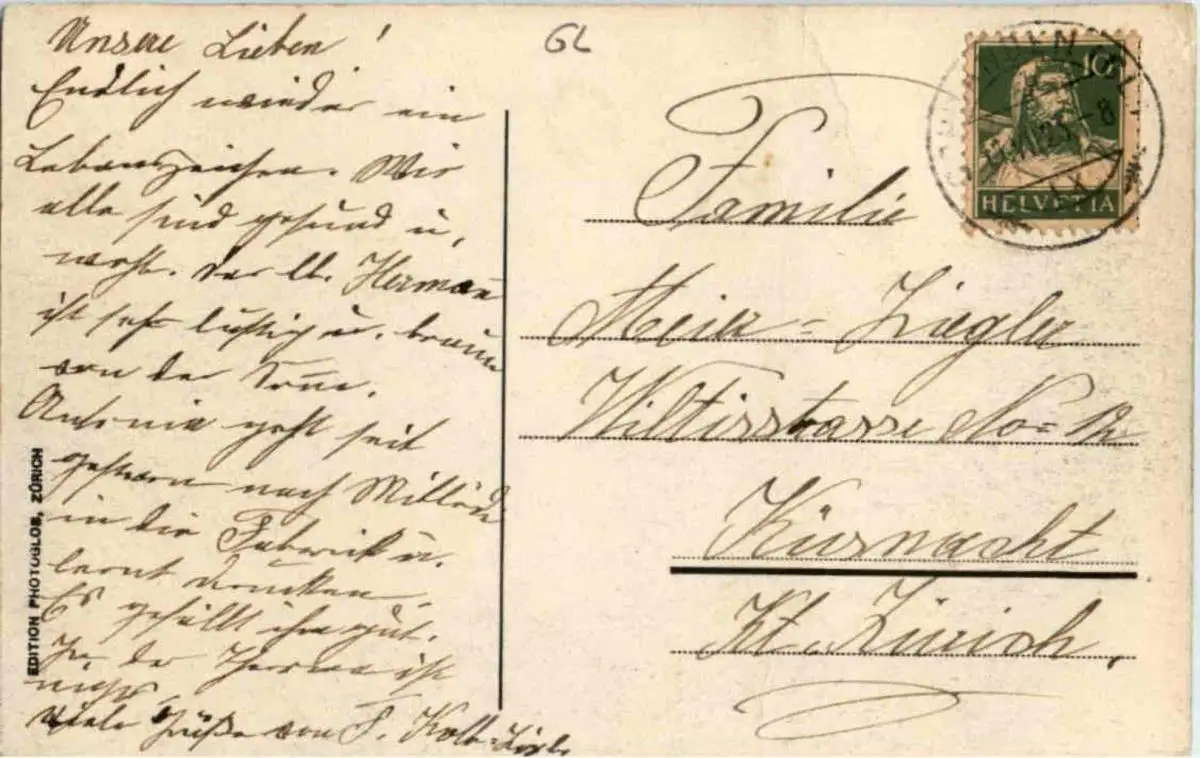 Unsere Lieben!
Endlich wieder ein
Lebenszeichen. Wir
alle sind gesund u.
wohl. Der lb. Herman
ist sehr lustig u. braun
von der Sonne.
Antonie geht seit
gestern nach Mitlödi
in die Fabrik u.
lernt drucken.
Es gefällt ihr gut.
In der ist
nichts
Viele Grüße von F. Kolb-
GL
10
HELVETIA
23.-8
Familie
Meier=Ziegler
Wiltisstrasse No=
Küsnacht
Kt. Zürich.
EDITION PHOTOGLOB, ZÜRICH